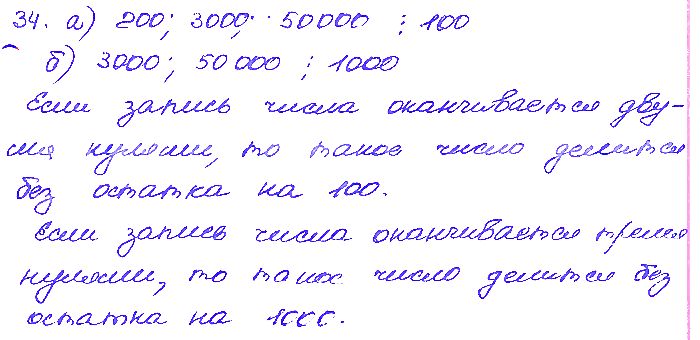 34. а) 200; 3000; 50000 : 100
б) 3000; 50000 : 1000
Если запись числа оканчивается дву-
мя нулями, то такое число делится
без остатка на 100.
Если запись числа оканчивается тремя
нулями, то такое число делится без
остатка на 1000.